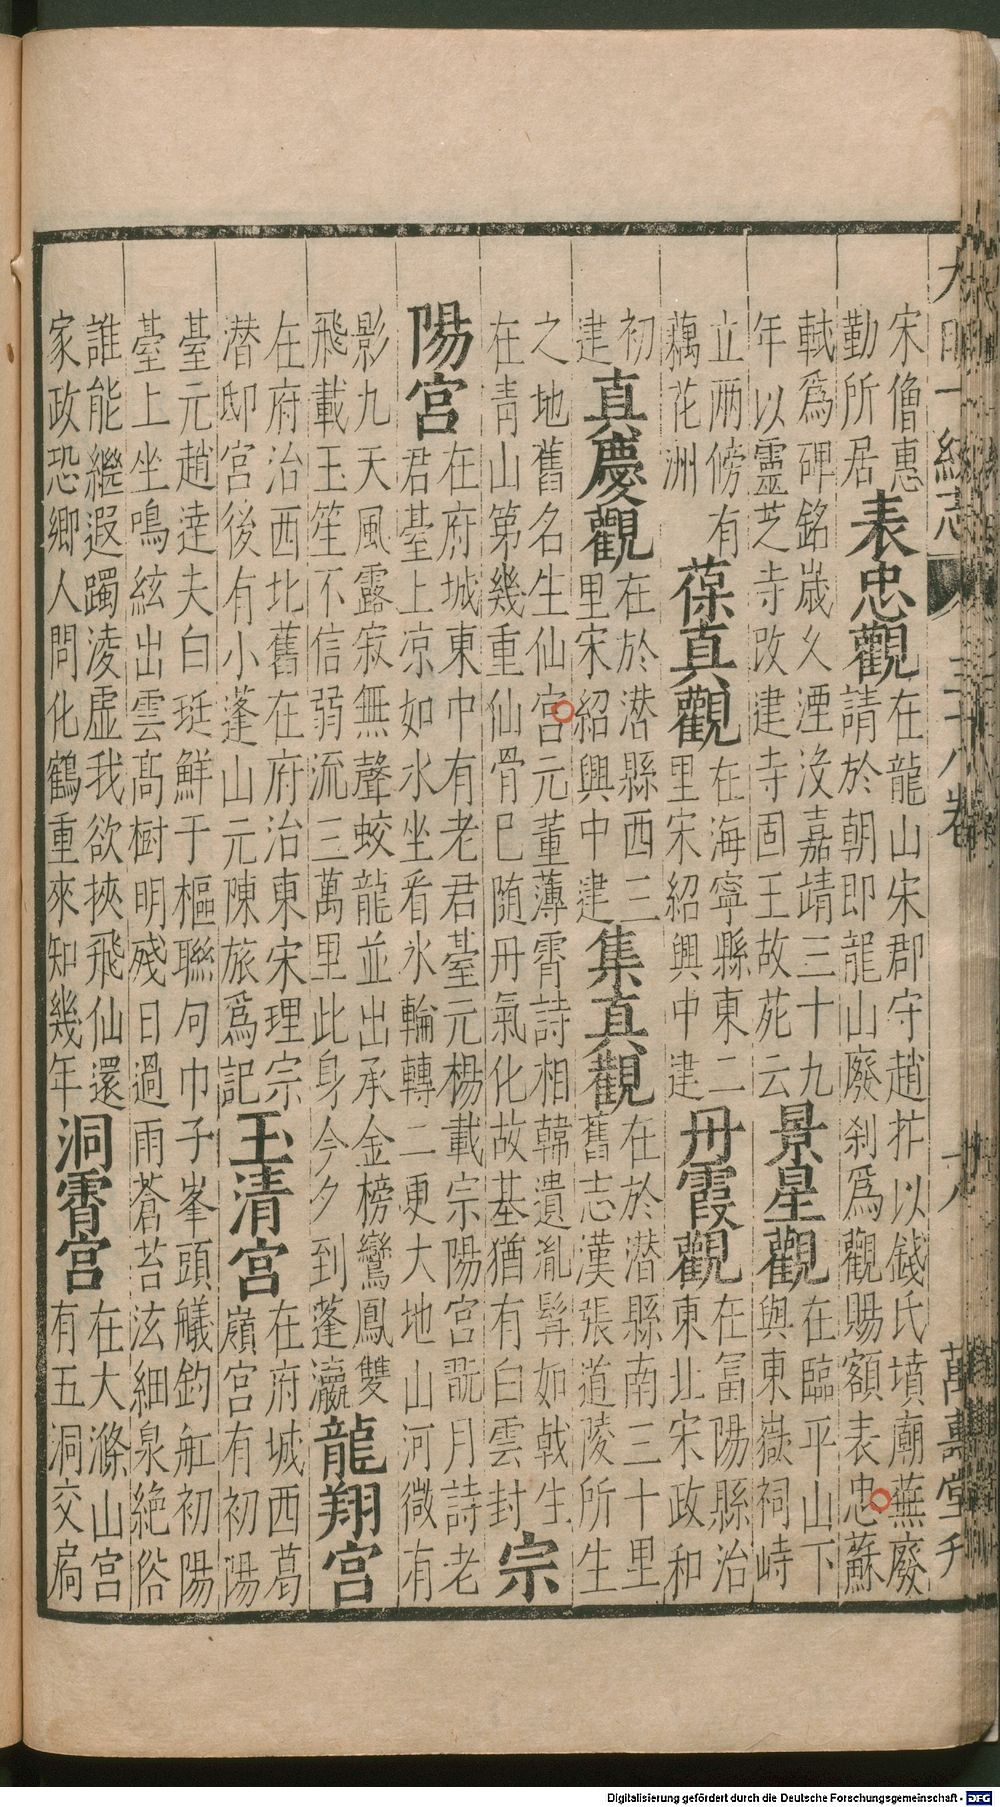 大明一統志 三十八卷 十八 萬壽堂刋
宋僧惠
勤所居
表忠觀
在龍山宋郡守趙抃以錢氏墳廟蕪廢
請於朝即龍山廢刹爲觀賜額表忠蘇
軾爲碑銘歲久湮沒嘉靖三十九
年以靈芝寺改建寺固王故苑云
景星觀
在臨平山下
與東嶽祠峙
立兩傍有
藕花洲
葆真觀
在海寧縣東二
里宋紹興中建
丹霞觀
在富陽縣治
東北宋政和
初
建
真慶觀
在於潛縣西三
里宋紹興中建
集真觀
在於潛縣南三十里
舊志漢張道陵所生
之地舊名生仙宮元董薄霄詩相韓遺胤髯如戟生
在青山第幾重仙骨已随丹氣化故基猶有白雲封
宗
陽宮
在府城東中有老君臺元楊載宗陽宮翫月詩老
君臺上凉如水坐看氷輪轉二更大地山河微有
影九天風露寂無聲蛟龍並出承金榜鸞鳳雙
飛載玉笙不信弱流三萬里此身今夕到蓬瀛
龍翔宮
在府治西北舊在府治東宋理宗
潜邸宮後有小蓬山元陳旅爲記
玉清宮
在府城西葛
嶺宮有初陽
臺元趙逹夫白珽鮮于樞聯句巾子峯頭艤釣舡初陽
臺上坐鳴絃出雲髙樹明殘日過雨蒼苔泫細泉絶俗
誰能繼遐躅淩虛我欲挾飛仙還
家政恐鄉人問化鶴重來知幾年
洞霄宮
在大滌山宮
有五洞交扃
Digitalisierung gefördert durch die Deutsche Forschungsgemeinschaft - DFG